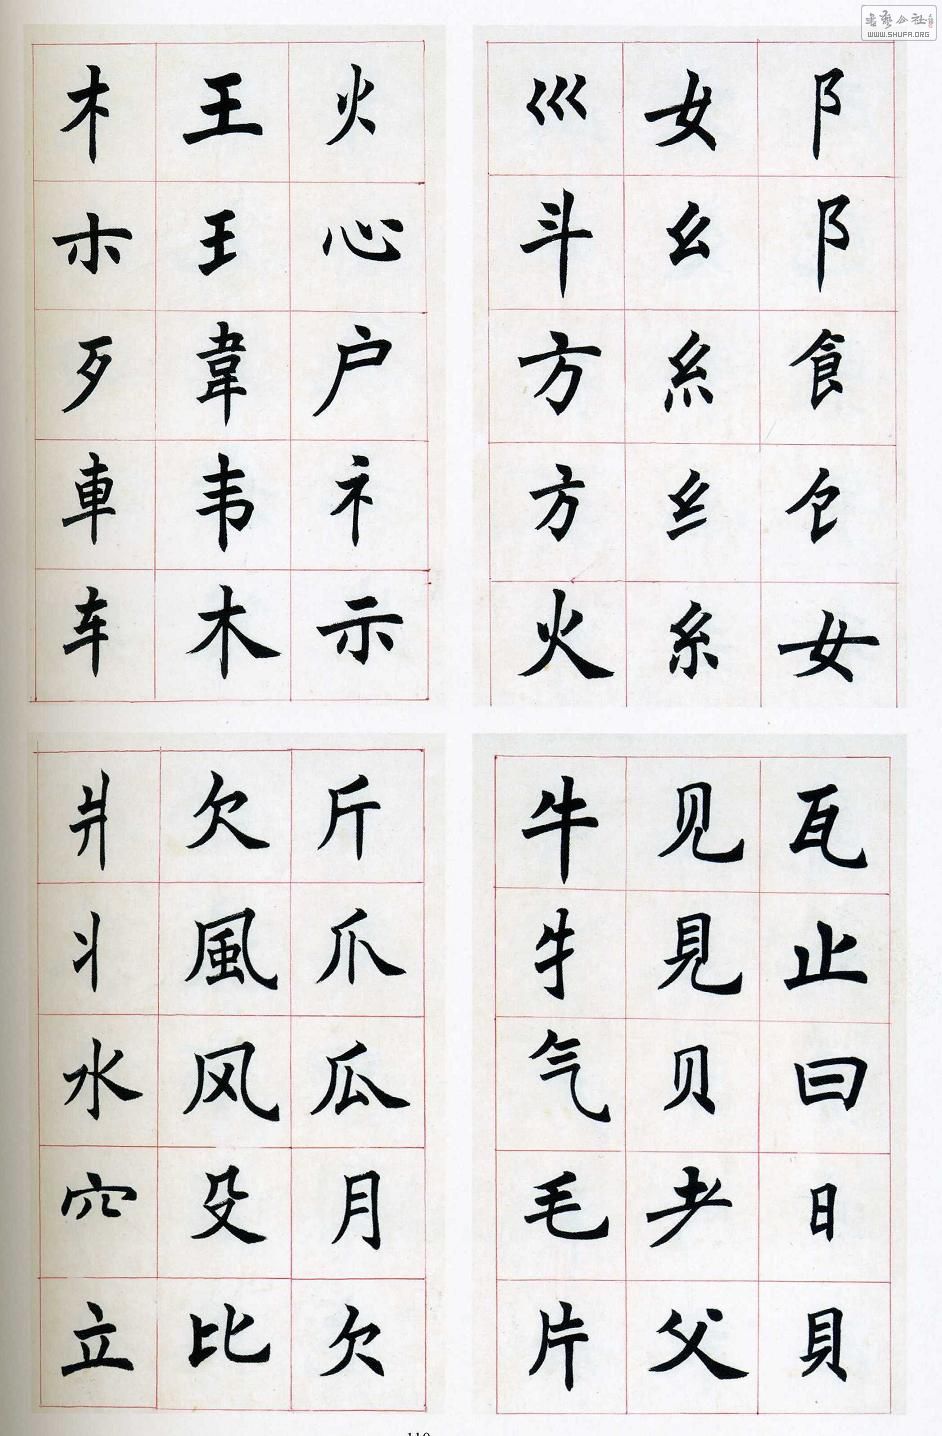 書藝公社
WWW.SHUFA.ORG
阝阝飠饣女
女幺糹纟糸
巛斗方方火
火心户礻示
王王韋韦木
木朩歹車车
瓦止曰日貝
见見贝耂父
牛牜气毛片
斤爪瓜月欠
欠風风殳比
爿丬水穴立